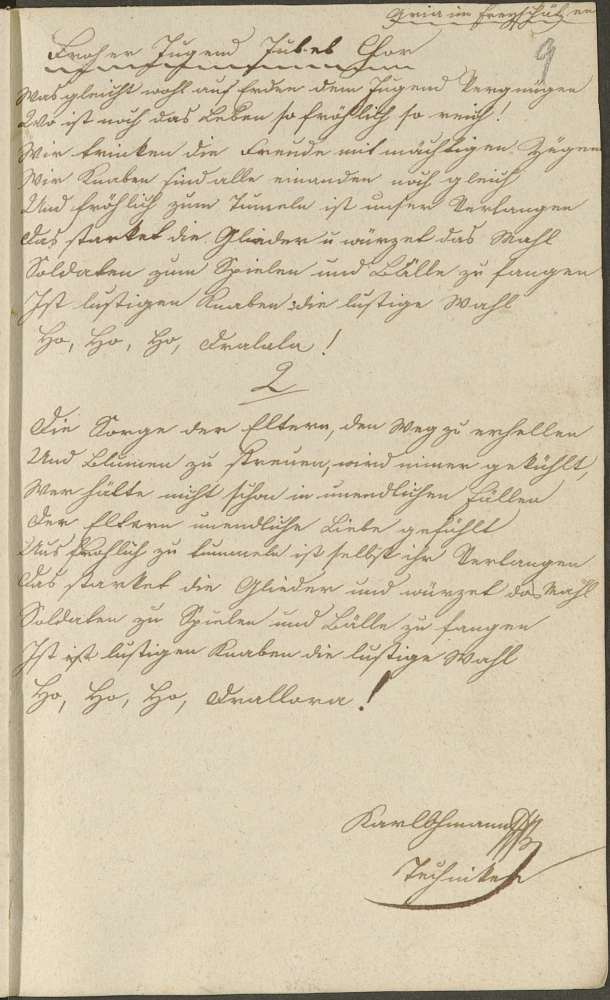 Aria im Freyschützen
9
Froher Jugend Jubel Chor
Was gleicht wohl auf Erden dem Jugend Vergnügen
Wo ist noch das Leben so fröhlich so reich!
Wir trinken die Freude mit mächtigen Zügen
Wir Knaben sind alle einander noch gleich
Und fröhlich zum Tumeln ist unser Verlangen
Das starket die Glieder u würzet das Mahl
Soldaten zum Spielen und Bälle zu fangen
Ist lustigen Knaben die lustige Wahl
Ho, Ho, Ho, Dralala!
2
Die Sorge der Eltern, den Weg zu erhellen
Und Blumen zu streuen, wird nimer gekühlt,
Wer hätte nicht schon in unendlichen Fällen
Der Eltern unendliche Liebe gefühlt
Uns fröhlich zu tummeln ist selbst ihr Verlangen
Das starket die Glieder und würzet das Mahl
Soldaten zu Spielen und Bälle zu fangen
Ist lustigen Knaben die lustige Wahl
Ho, Ho, Ho, Drallora!
Karl Ohmann
Techniker